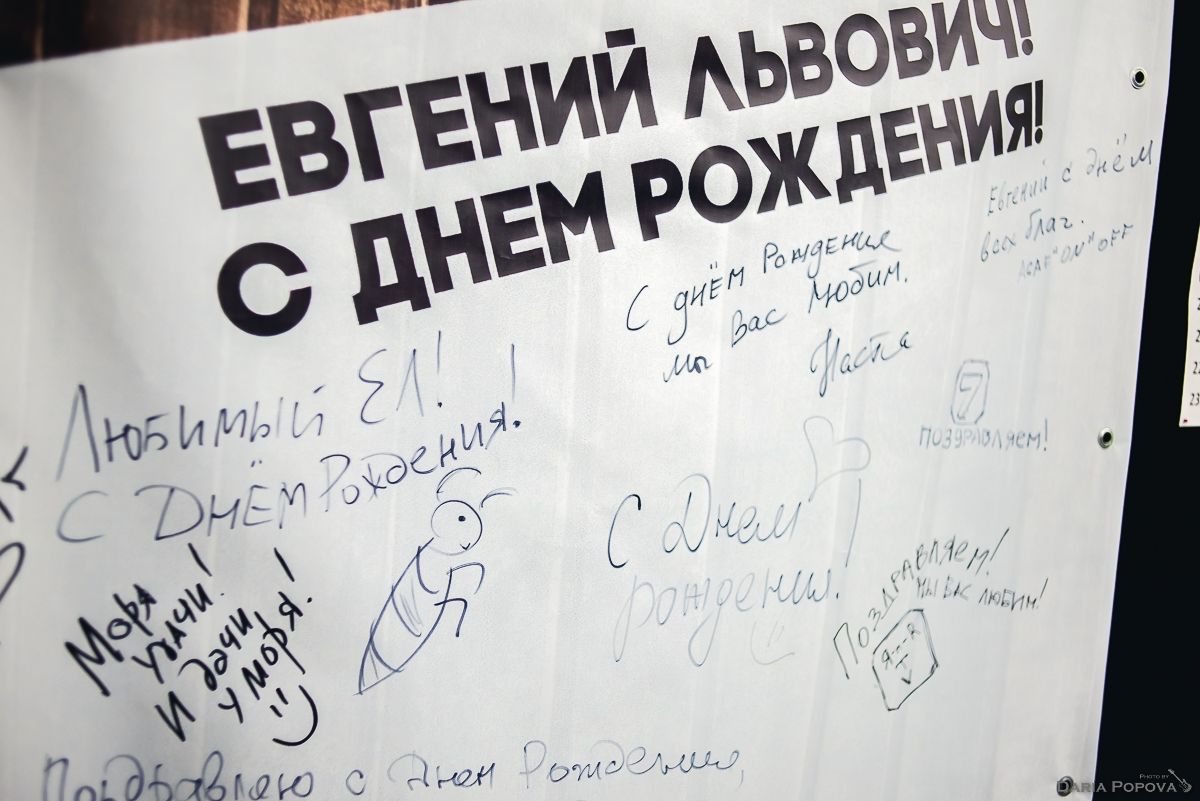 ЕВГЕНИЙ ЛЬВОВИЧ!
С ДНЕМ РОЖДЕНИЯ!
Евгений с днём
всех благ.
"ON" OFF
С днём Рождения
мы Вас любим.
Настя
ПОЗДРАВЛЯЕМ!
Любимый ЕЛ!
С Днём Рождения!
Моря
удачи!
И дачи
у моря!
С Днем
рождения!
Поздравляем!
Мы вас любим!
Поздравляю с Днем Рождения,
PHOTO BY
DARIA POPOVA